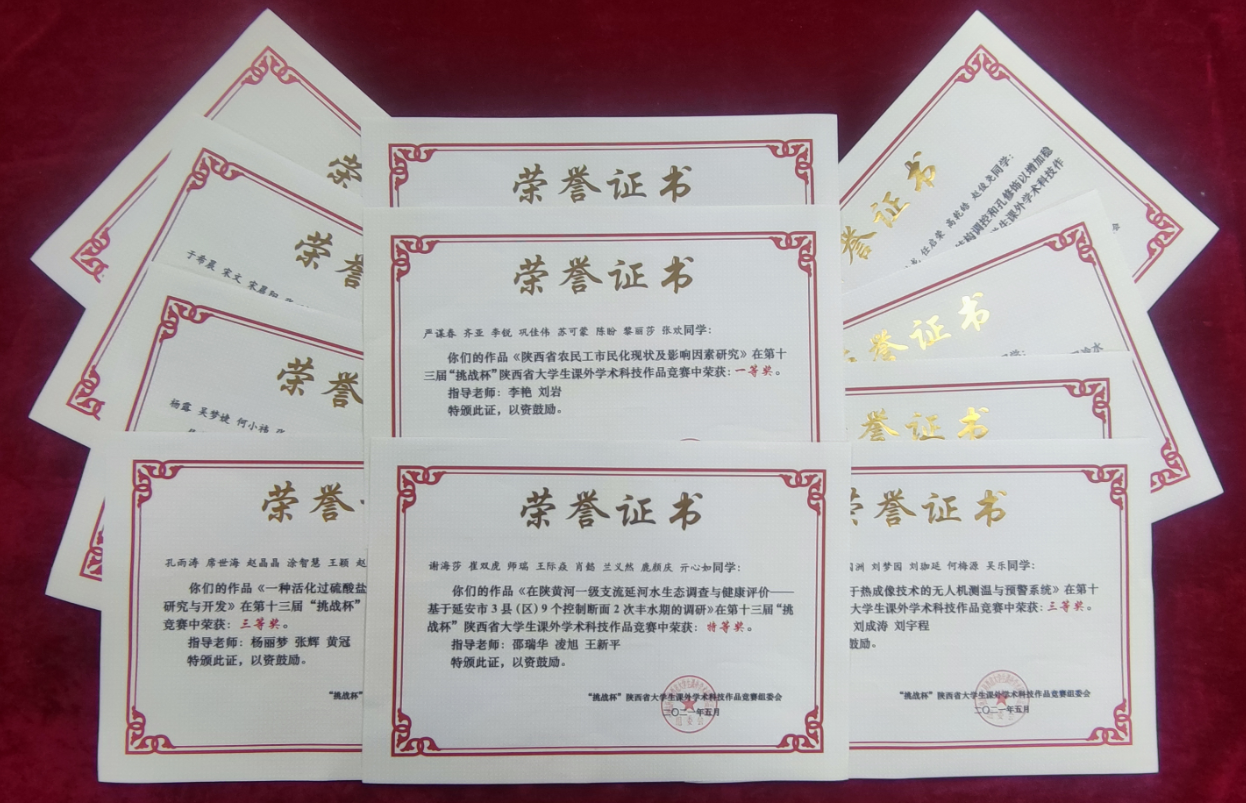 荣
荣誉
于希晨 宋文
荣誉
杨露 吴梦婕 何小祎
荣誉
孔雨涛 席世海 赵晶晶 涂智慧 王颖 赵
你们的作品《一种活化过硫酸盐
研究与开发》在第十三届“挑战杯”
竞赛中荣获：三等奖。
指导老师：杨丽梦 张辉 黄冠
特颁此证，以资鼓励。
“挑战杯”
荣誉证书
荣誉证书
严谋春 齐亚 李锐 巩佳伟 苏可蒙 陈盼 黎丽莎 张欢同学：
你们的作品《陕西省农民工市民化现状及影响因素研究》在第十
三届“挑战杯”陕西省大学生课外学术科技作品竞赛中荣获：一等奖。
指导老师：李艳 刘岩
特颁此证，以资鼓励。
荣誉证书
谢海莎 崔双虎 师瑞 王际焱 肖懿 兰义然 鹿颜庆 亓心如同学：
你们的作品《在陕黄河一级支流延河水生态调查与健康评价——
基于延安市3县（区）9个控制断面2次丰水期的调研》在第十三届“挑
战杯”陕西省大学生课外学术科技作品竞赛中荣获：特等奖。
指导老师：邵瑞华 凌旭 王新平
特颁此证，以资鼓励。
“挑战杯”陕西省大学生课外学术科技作品竞赛组委会
二〇二一年五月
誉证书
任启荣 高乾皓 赵俊尧同学：
结构调控和孔修饰以增加稳
生课外学术科技作
誉证书
同学：
冷水
誉证书
荣誉证书
洲 刘梦园 刘珈延 何梅源 吴乐同学：
于热成像技术的无人机测温与预警系统》在第十
大学生课外学术科技作品竞赛中荣获：三等奖。
刘成涛 刘宇程
鼓励。
“挑战杯”陕西省大学生课外学术科技作品竞赛组委会
二〇二一年五月